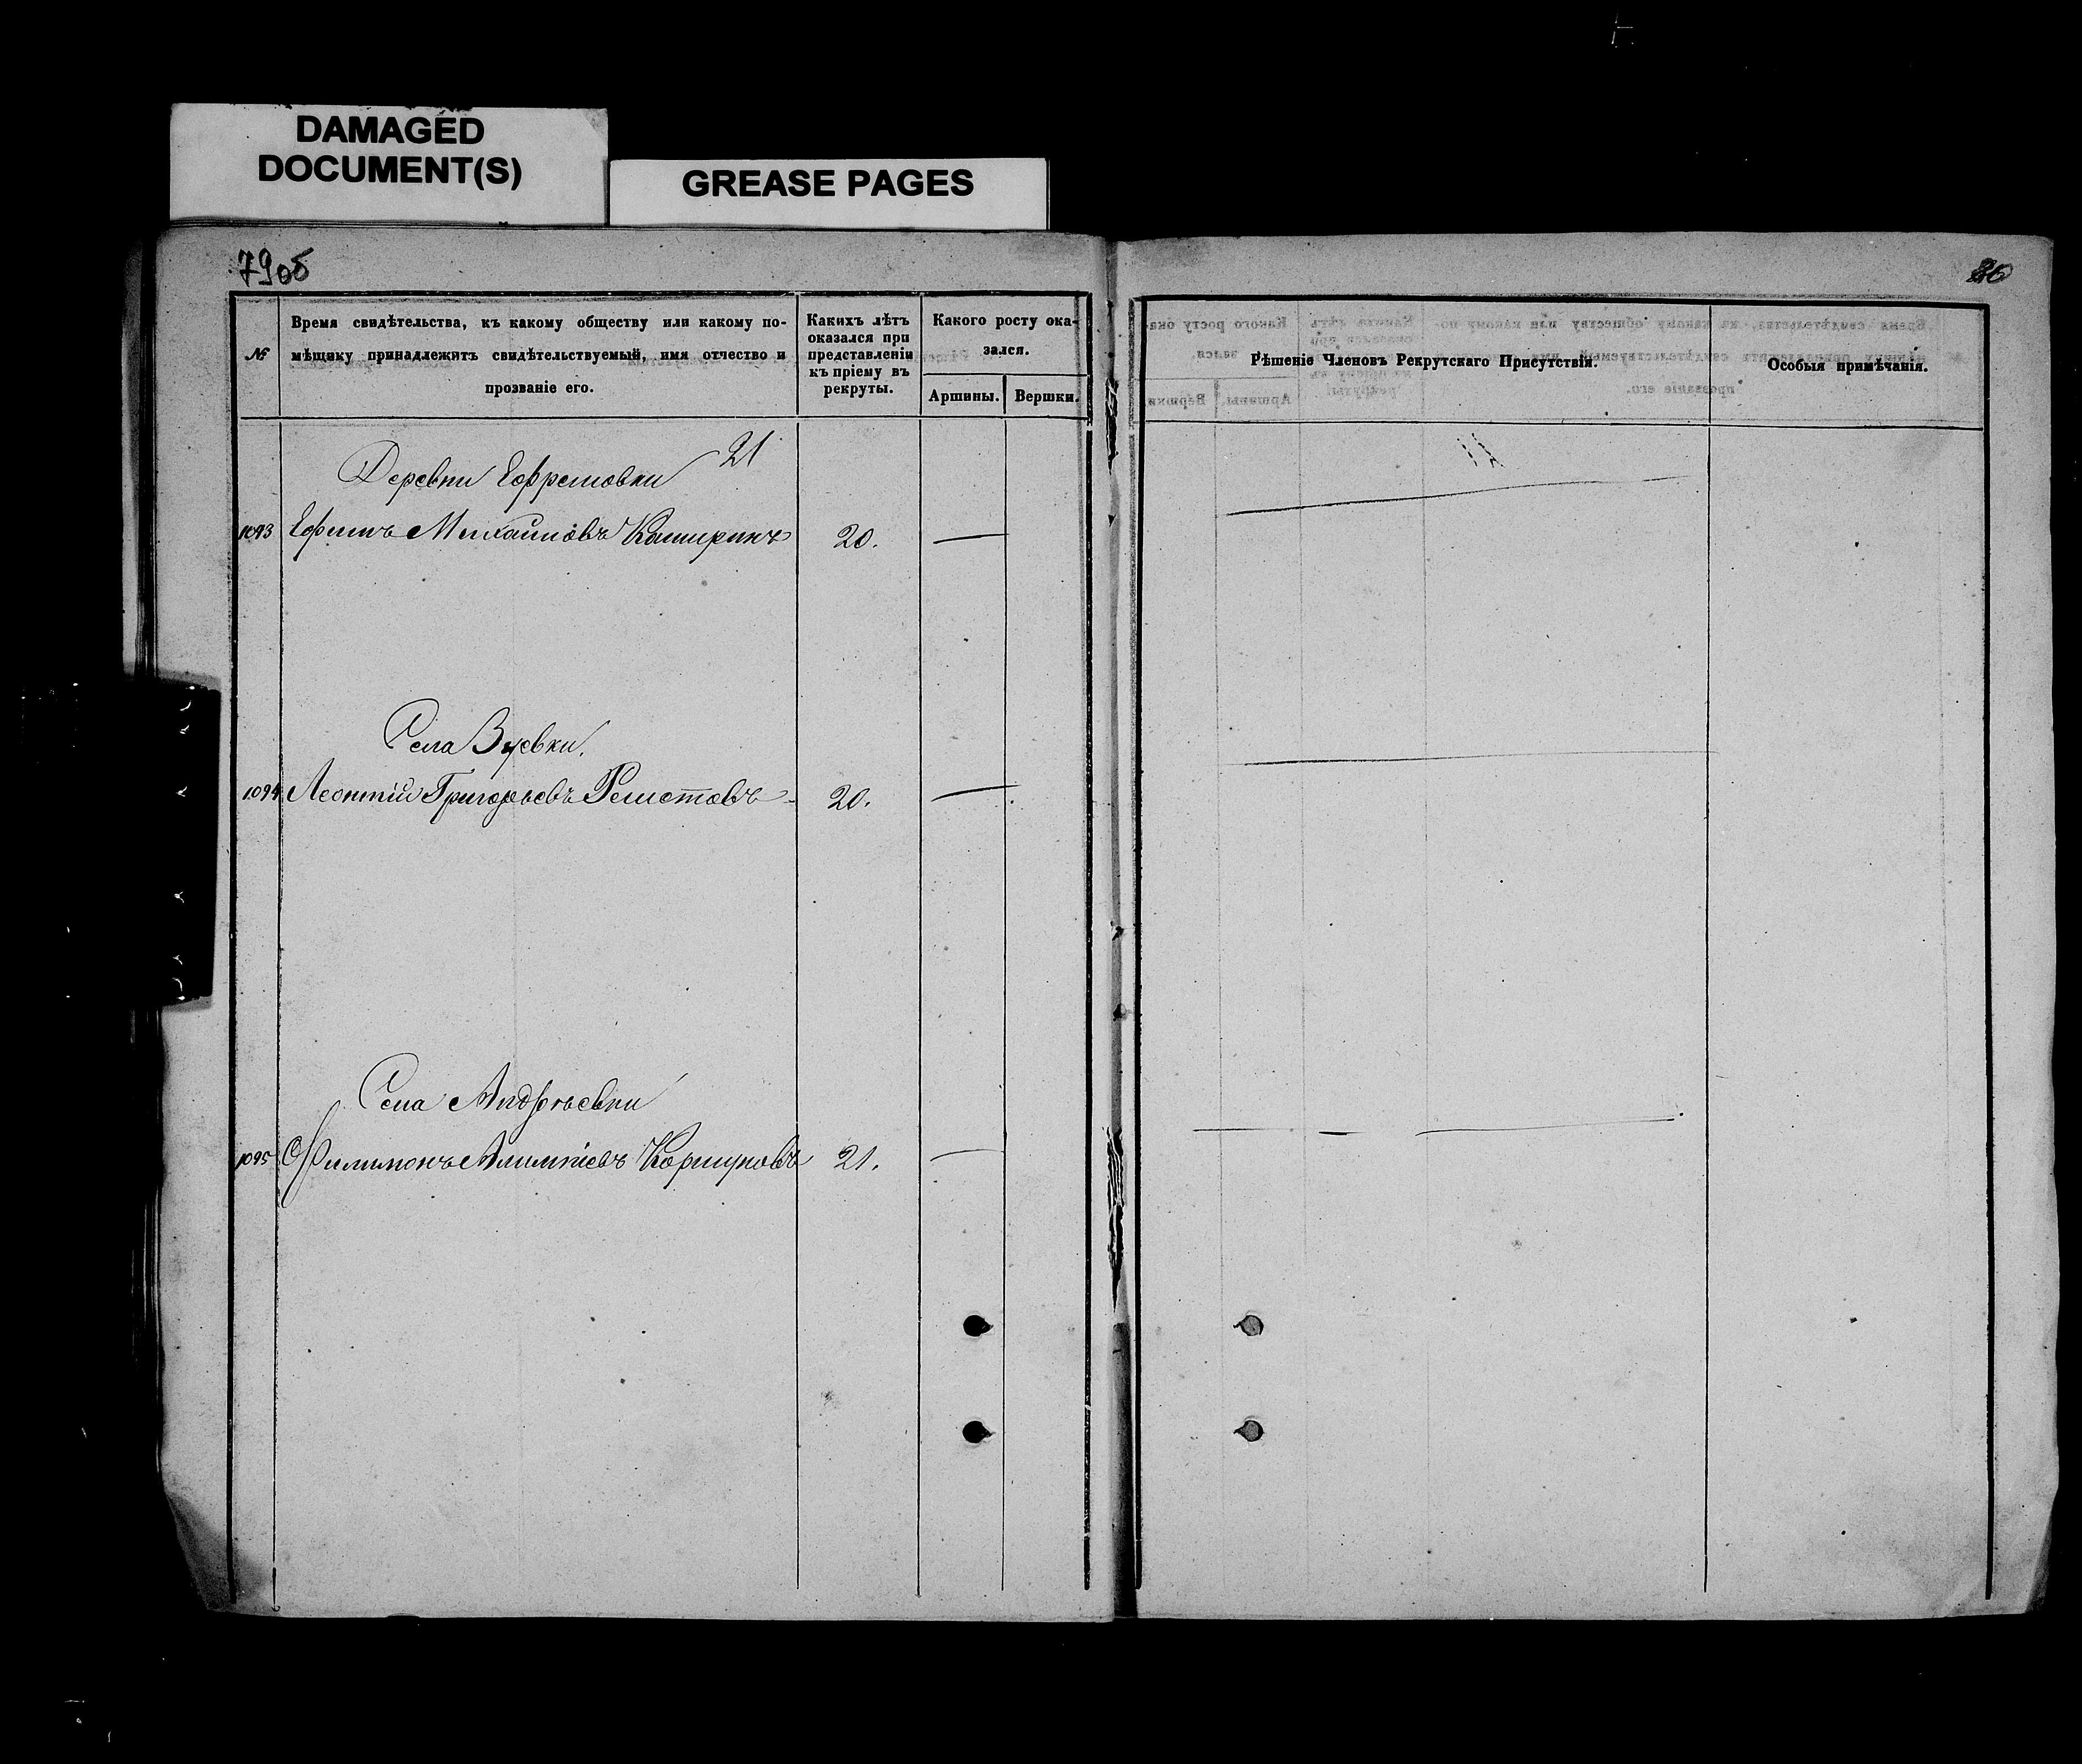 DAMAGED
DOCUMENT(S)
GREASE PAGES
79об
№
Время свидѣтельства, къ какому обществу или какому по-
мѣщику принадлежитъ свидѣтельствуемый, имя отчество и
прозваніе его.
Какихъ лѣтъ
оказался при
представленіи
къ пріему въ
рекруты.
Какого росту ока-
зался.
Аршины.
Вершки.
Рѣшеніе Членовъ Рекрутскаго Присутствія.
Особыя примѣчанія.
21
Деревни Ефремовки
1093 Ефимъ Михаиловъ Каширинъ 20.
Села
1094 Леонтій Григорьевъ 20.
Села Андреевки
1095 Филимонъ Алимпіевъ Коршуновъ 21.